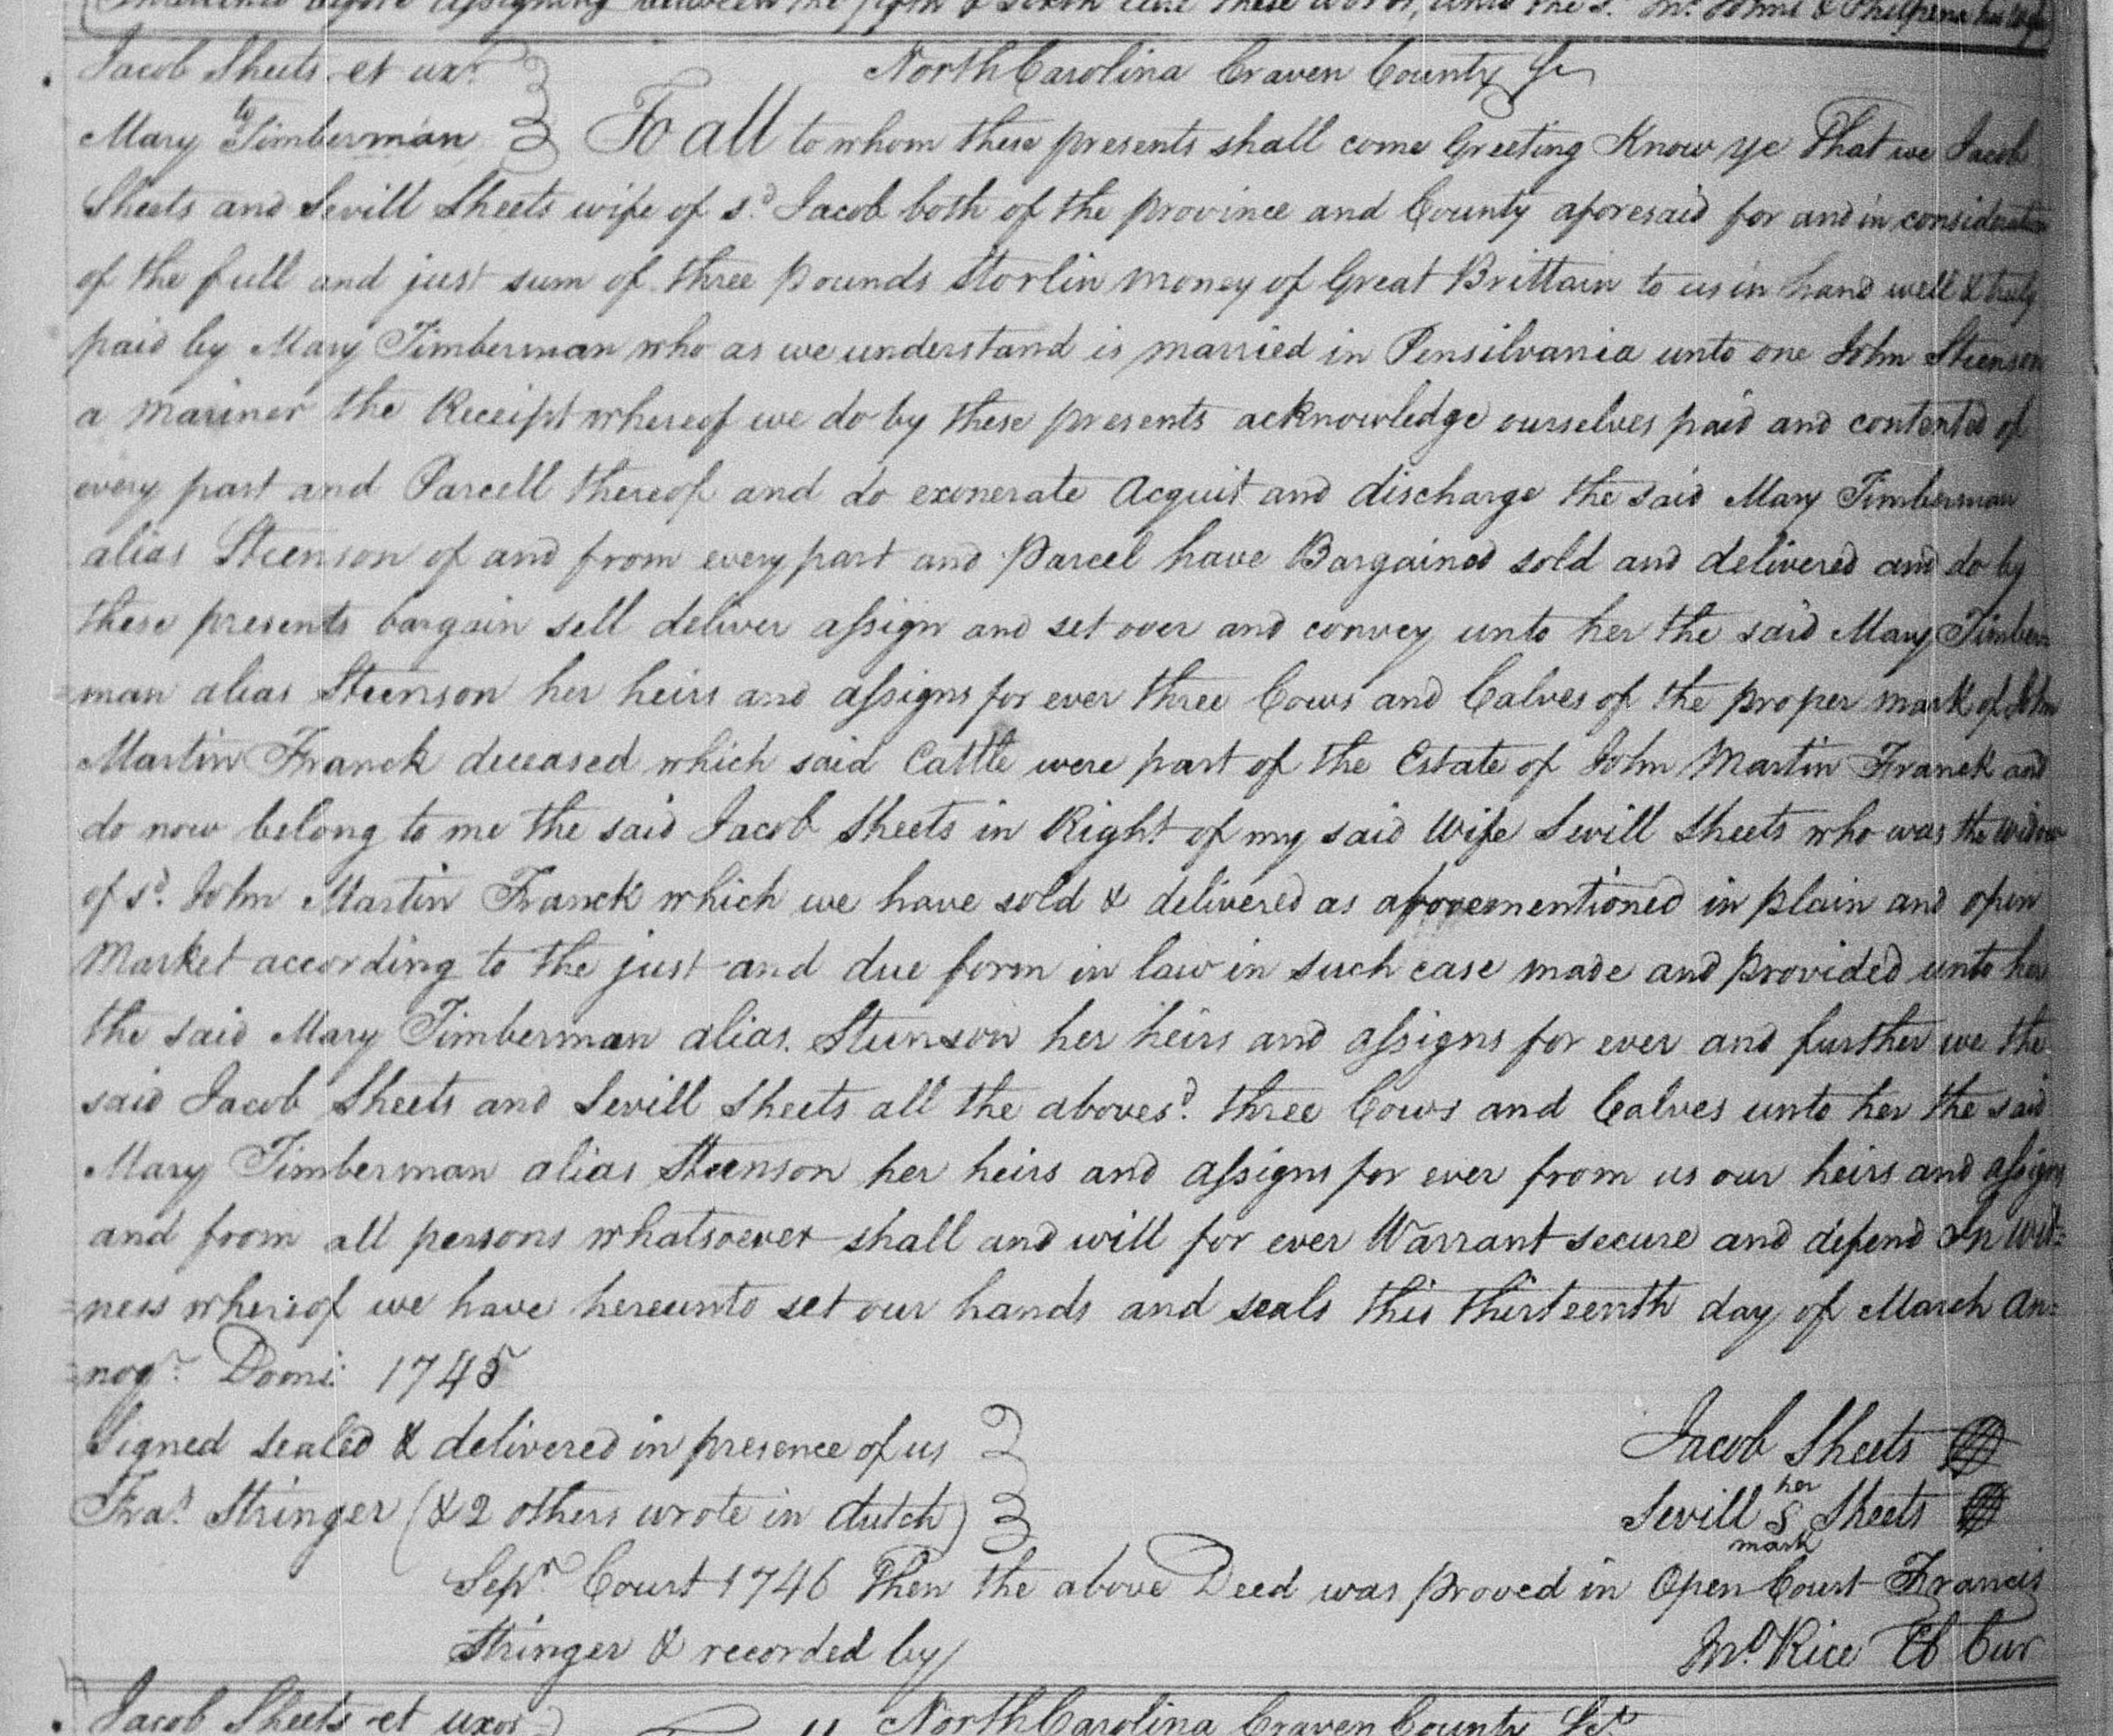 before assigning between the fifth & sixth line these words, unto the sd.
Jacob Sheets et uxr. North Carolina Craven County Sc
to
Mary Timberman To all to whom these presents shall come Greeting Know ye That we Jacob
Sheets and Sevill Sheets wife of sd. Jacob both of the province and County aforesaid for and in consideration
of the full and just sum of three pounds Storlin money of Great Brittain to us in hand well & truly
paid by Mary Timberman who as we understand is married in Pensilvania unto one John Steenson
a mariner the Receipt whereof we do by these presents acknowledge ourselves paid and contented of
every part and Parcell thereof and do exonerate Acquit and discharge the said Mary Timberman
alias Steenson of and from every part and Parcel have Bargained sold and delivered and do by
these presents bargain sell deliver assign and set over and convey unto her the said Mary Timber=
=man alias Steenson her heirs and assigns for ever three Cows and Calves of the proper mark of John
Martin Franck deceased which said Cattle were part of the Estate of John Martin Franck and
do now belong to me the said Jacob Sheets in Right of my said Wife Sevill Sheets who was the Widow
of sd. John Martin Franck which we have sold & delivered as aforementioned in plain and open
Market according to the just and due form in law in such case made and provided unto her
the said Mary Timberman alias. Steenson her heirs and assigns for ever and further we the
said Jacob Sheets and Sevill Sheets all the abovesd. three Cows and Calves unto her the said
Mary Timberman alias Steenson her heirs and assigns for ever from us our heirs and assigns
and from all persons whatsoever shall and will for ever Warrant secure and defend In wit=
=ness whereof we have hereunto set our hands and seals this thirteenth day of March An=
=noq. Domi: 1745
Signed sealed & delivered in presence of us Jacob Sheets
Fras. Stringer (& 2 others wrote in dutch) Sevill her S mark Sheets
Sepr. Court 1746 Then the above Deed was proved in Open Court Francis
Stringer & recorded by Jno. Rice Cl Cur
Jacob Sheets et uxor North Carolina Craven County Sct